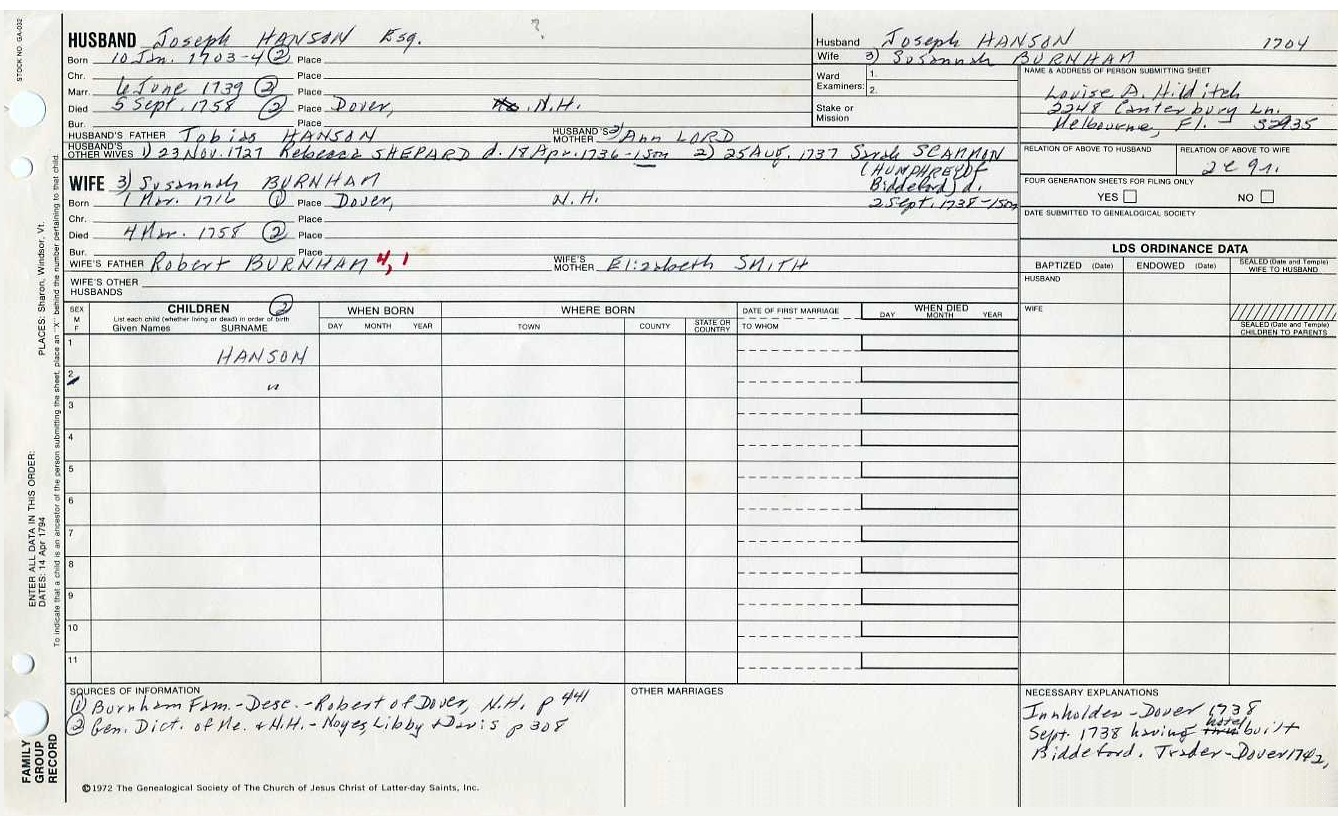 STOCK NO. GA-032
HUSBAND Joseph HANSON Esq. ?
Born 10 Jan. 1703-4 (2) Place
Chr. Place
Marr. 6 June 1739 (2) Place
Died 5 Sept. 1758 (2) Place Dover, N.H.
Bur. Place
HUSBAND'S FATHER Tobias HANSON HUSBAND'S MOTHER 2) Ann LORD
HUSBAND'S OTHER WIVES 1) 23 Nov. 1727 Rebecca SHEPARD d. 18 Apr. 1736 - 1 son 2) 25 Aug. 1737 Sarah SCAMMON
(HUMPHREY) of
Biddeford, d.
2 Sept. 1738 - 1 son
WIFE 3) Susannah BURNHAM
Born 1 Mar. 1716 (1) Place Dover, N.H.
Chr. Place
Died 4 Mar. 1758 (2) Place
Bur. Place
WIFE'S FATHER Robert BURNHAM 4,1 WIFE'S MOTHER Elizabeth SMITH
WIFE'S OTHER HUSBANDS
Husband Joseph HANSON 1704
Wife 3) Susannah BURNHAM
Ward Examiners: 1.
2.
Stake or Mission
NAME & ADDRESS OF PERSON SUBMITTING SHEET
Louise A. Hilditch
2248 Canterbury Ln.
Melbourne, Fl. 32935
RELATION OF ABOVE TO HUSBAND RELATION OF ABOVE TO WIFE
FOUR GENERATION SHEETS FOR FILING ONLY
YES NO
DATE SUBMITTED TO GENEALOGICAL SOCIETY
LDS ORDINANCE DATA
BAPTIZED (Date) ENDOWED (Date) SEALED (Date and Temple) WIFE TO HUSBAND
HUSBAND
WIFE
SEALED (Date and Temple) CHILDREN TO PARENTS
SEX M F
CHILDREN (2)
List each child (whether living or dead) in order of birth
Given Names SURNAME
WHEN BORN
DAY MONTH YEAR
WHERE BORN
TOWN COUNTY STATE OR COUNTRY
DATE OF FIRST MARRIAGE
TO WHOM
WHEN DIED
DAY MONTH YEAR
1 HANSON
2 "
3
4
5
6
7
8
9
10
11
SOURCES OF INFORMATION
(1) Burnham Fam. - Desc. - Robert of Dover, N.H. p 441
(2) Gen. Dict. of Me. & N.H. - Noyes, Libby & Davis p 308
©1972 The Genealogical Society of The Church of Jesus Christ of Latter-day Saints, Inc.
OTHER MARRIAGES
NECESSARY EXPLANATIONS
Innholder - Dover 1738
Sept. 1738 having hotel built
Biddeford. Trader - Dover 1742,
PLACES: Sharon, Windsor, Vt.
ENTER ALL DATA IN THIS ORDER:
DATES: 14 Apr 1794
To indicate that a child is an ancestor of the person submitting the sheet, place an "X" behind the number pertaining to that child.
FAMILY GROUP RECORD